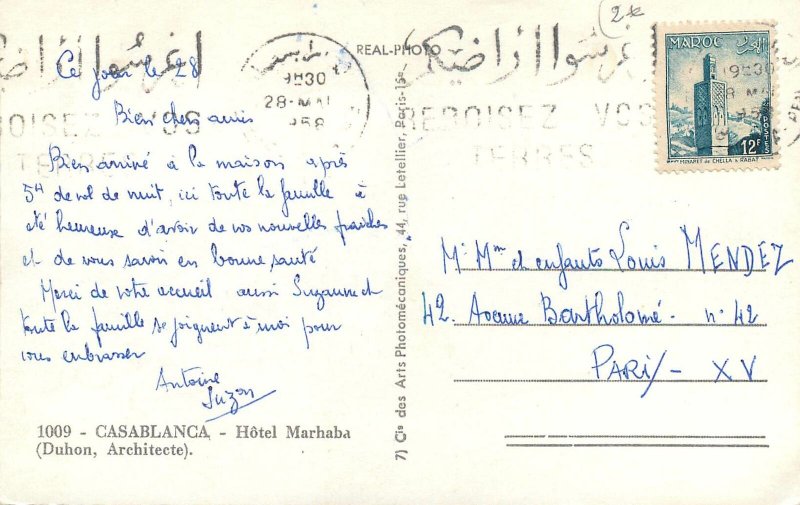 Ce jour le 28
Bien chers amis
Bien arrivé à la maison après
5H de vol de nuit, ici toute la famille à
été heureuse d'avoir de vos nouvelles fraiches
et de vous savoir en bonne santé
Merci de votre accueil aussi Suzanne et
toute la famille se joignent à moi pour
vous embrasser
Antoine
Suzon
1009 - CASABLANCA - Hôtel Marhaba
(Duhon, Architecte).
REAL-PHOTO
7) Cie des Arts Photomécaniques, 44, rue Letellier, Paris-15e
اغرسوا أراضيكم
REBOISEZ VOS
TERRES
19H30
28-MAI
1958
2€
MAROC المغرب
POSTES
12F
MINARET de CHELLA à RABAT
Mr Mme et enfants Louis MENDEZ
42. Avenue Bartholomé. n. 42
PARIS - XV